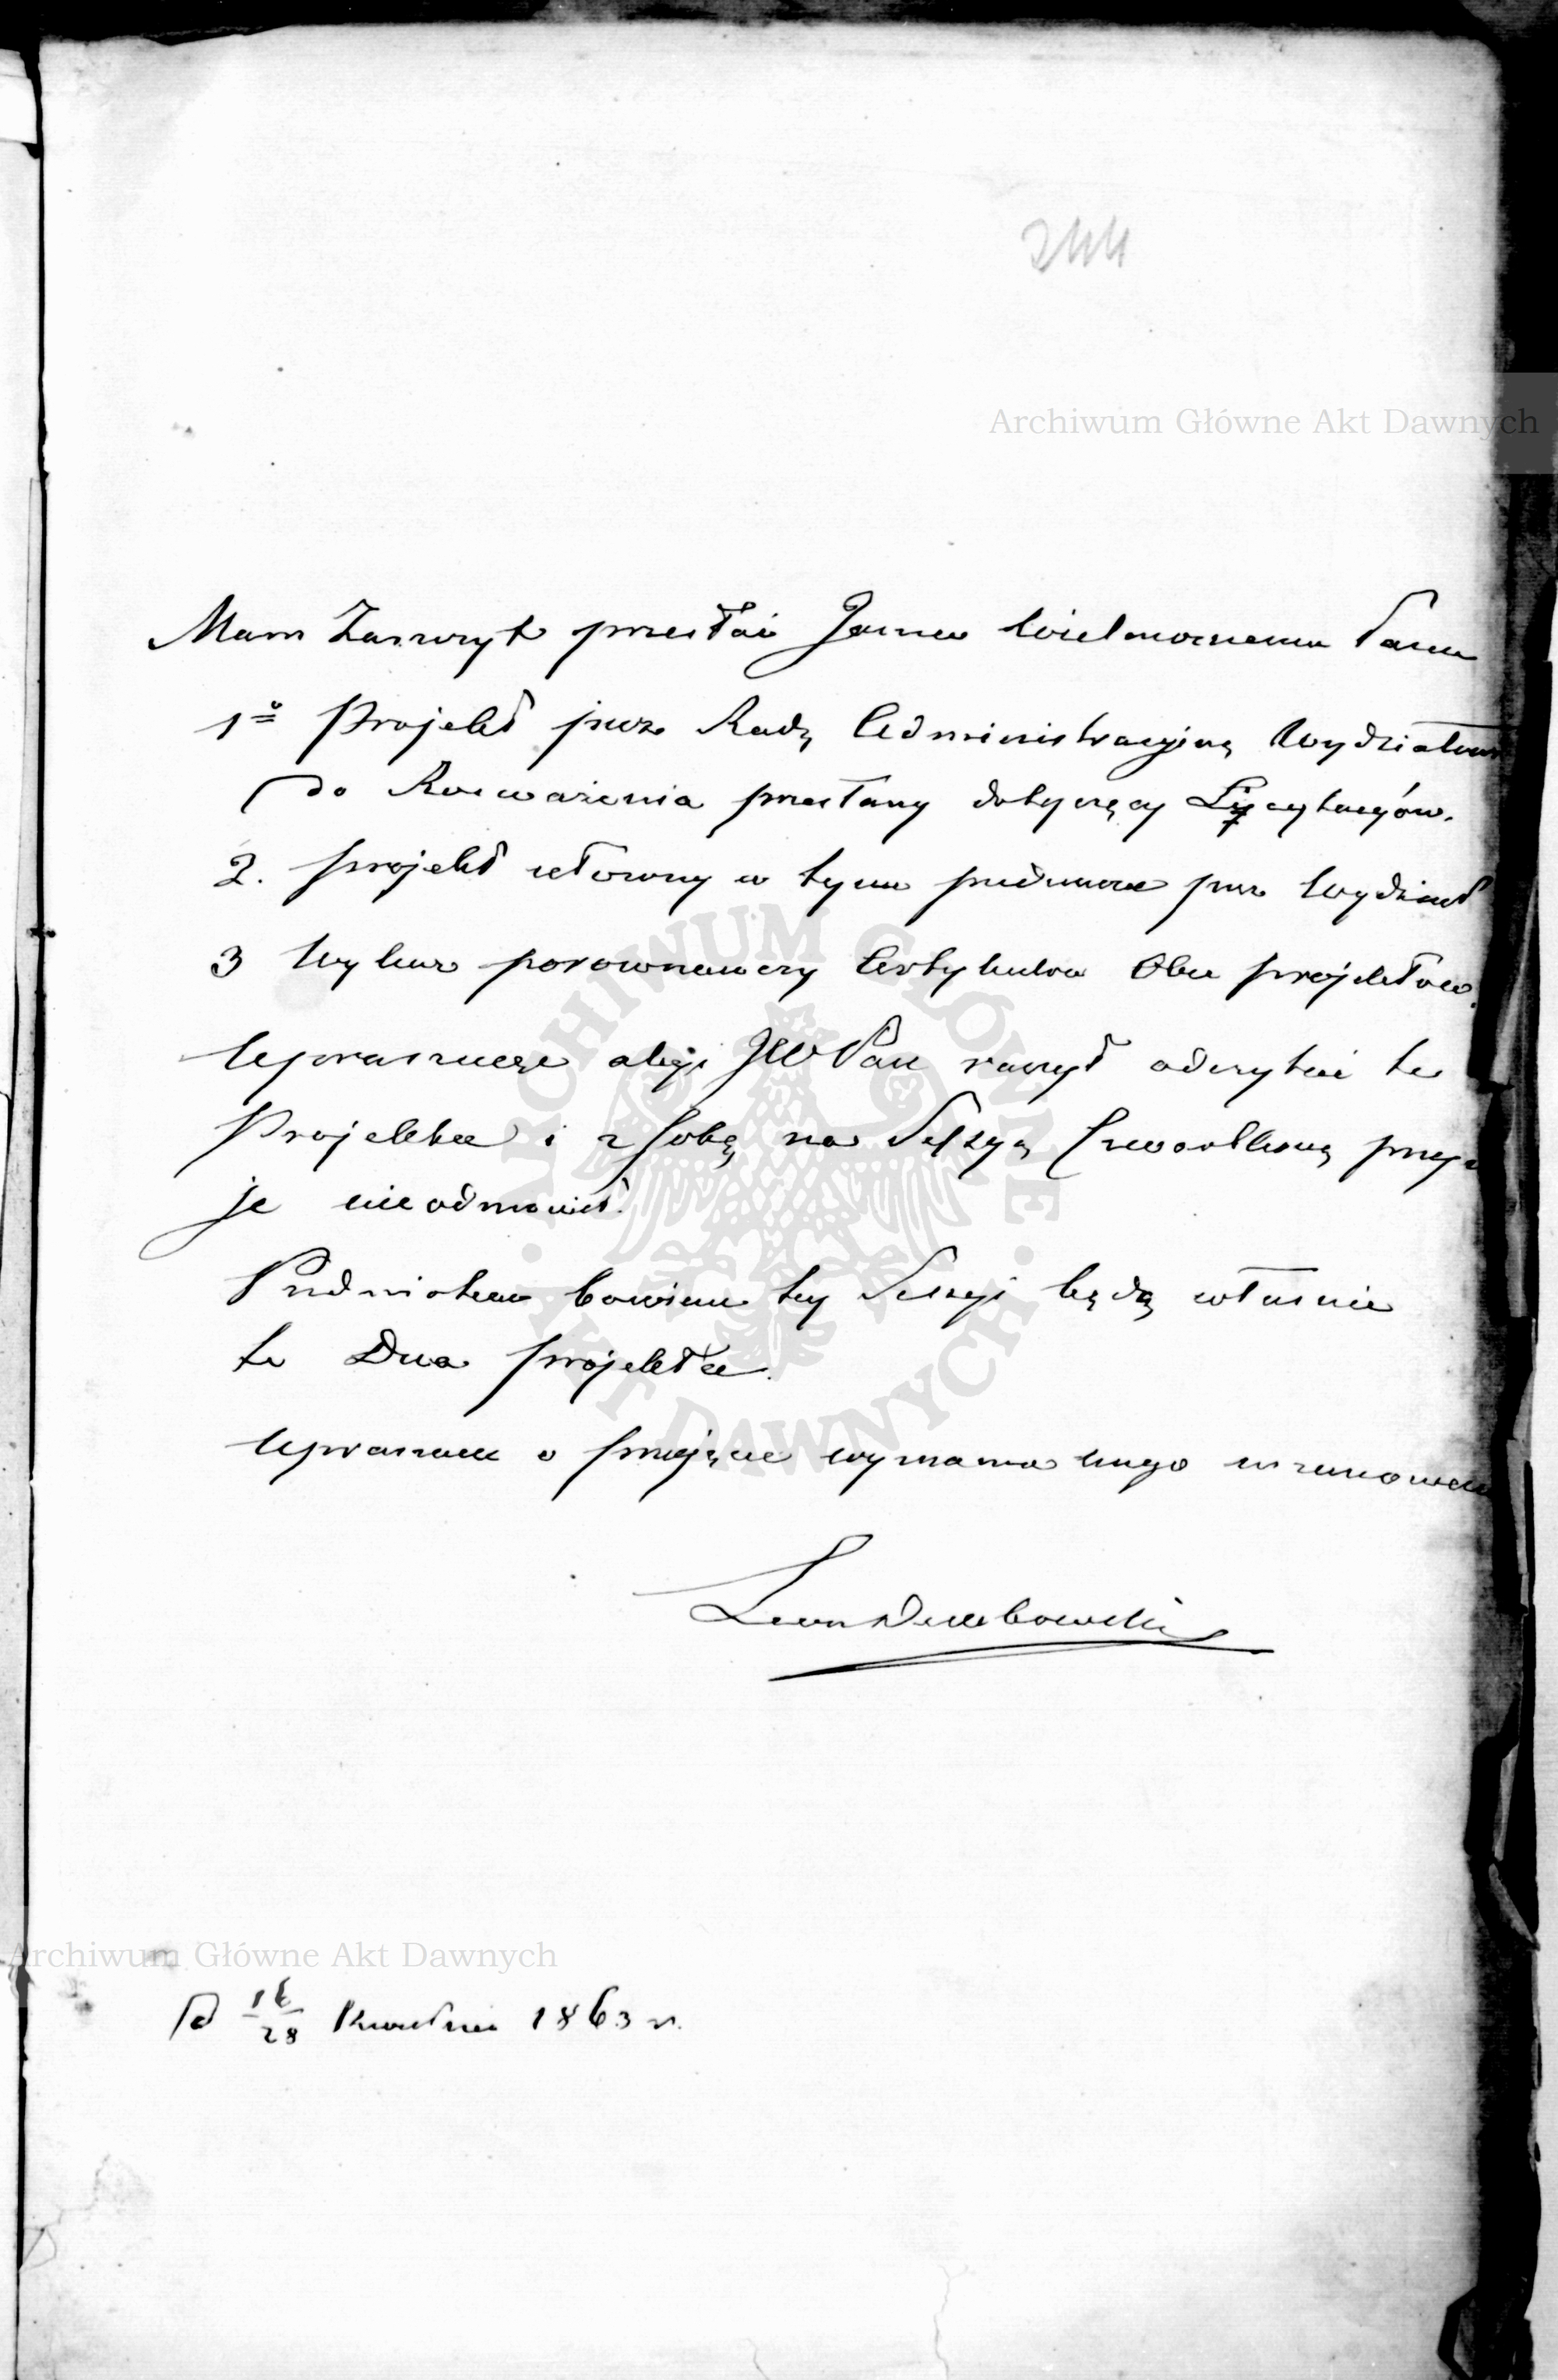 244
Archiwum Główne Akt Dawnych
Mam Zaszczyt przesłać Jasnie Wielmożnemu Panu
1º Projekt przez Radę Administracyjną Wydziałowi
do Rozważenia przesłany dotyczący Licytacyów.
2. projekt ułożony w tym przedmiocie przez Wydział
3 Wykaz porownawczy Artykułow Obu projektow.
Upraszając ażeby JWPan raczył odczytać te
Projekta i z sobą na Sessyą Czwartkową przy-
je nieodmówił.
Przedmiotem bowiem tey Sessyi będą własnie
te Dwa projekta.
Upraszam o przyjęcie wyznania mego uszanowania
Leon Dembowski
ARCHIWUM GŁÓWNE AKT DAWNYCH
Archiwum Główne Akt Dawnych
d 16/28 Kwietnia 1863 r.